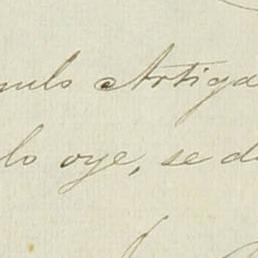 Artiga
lo oye, se d